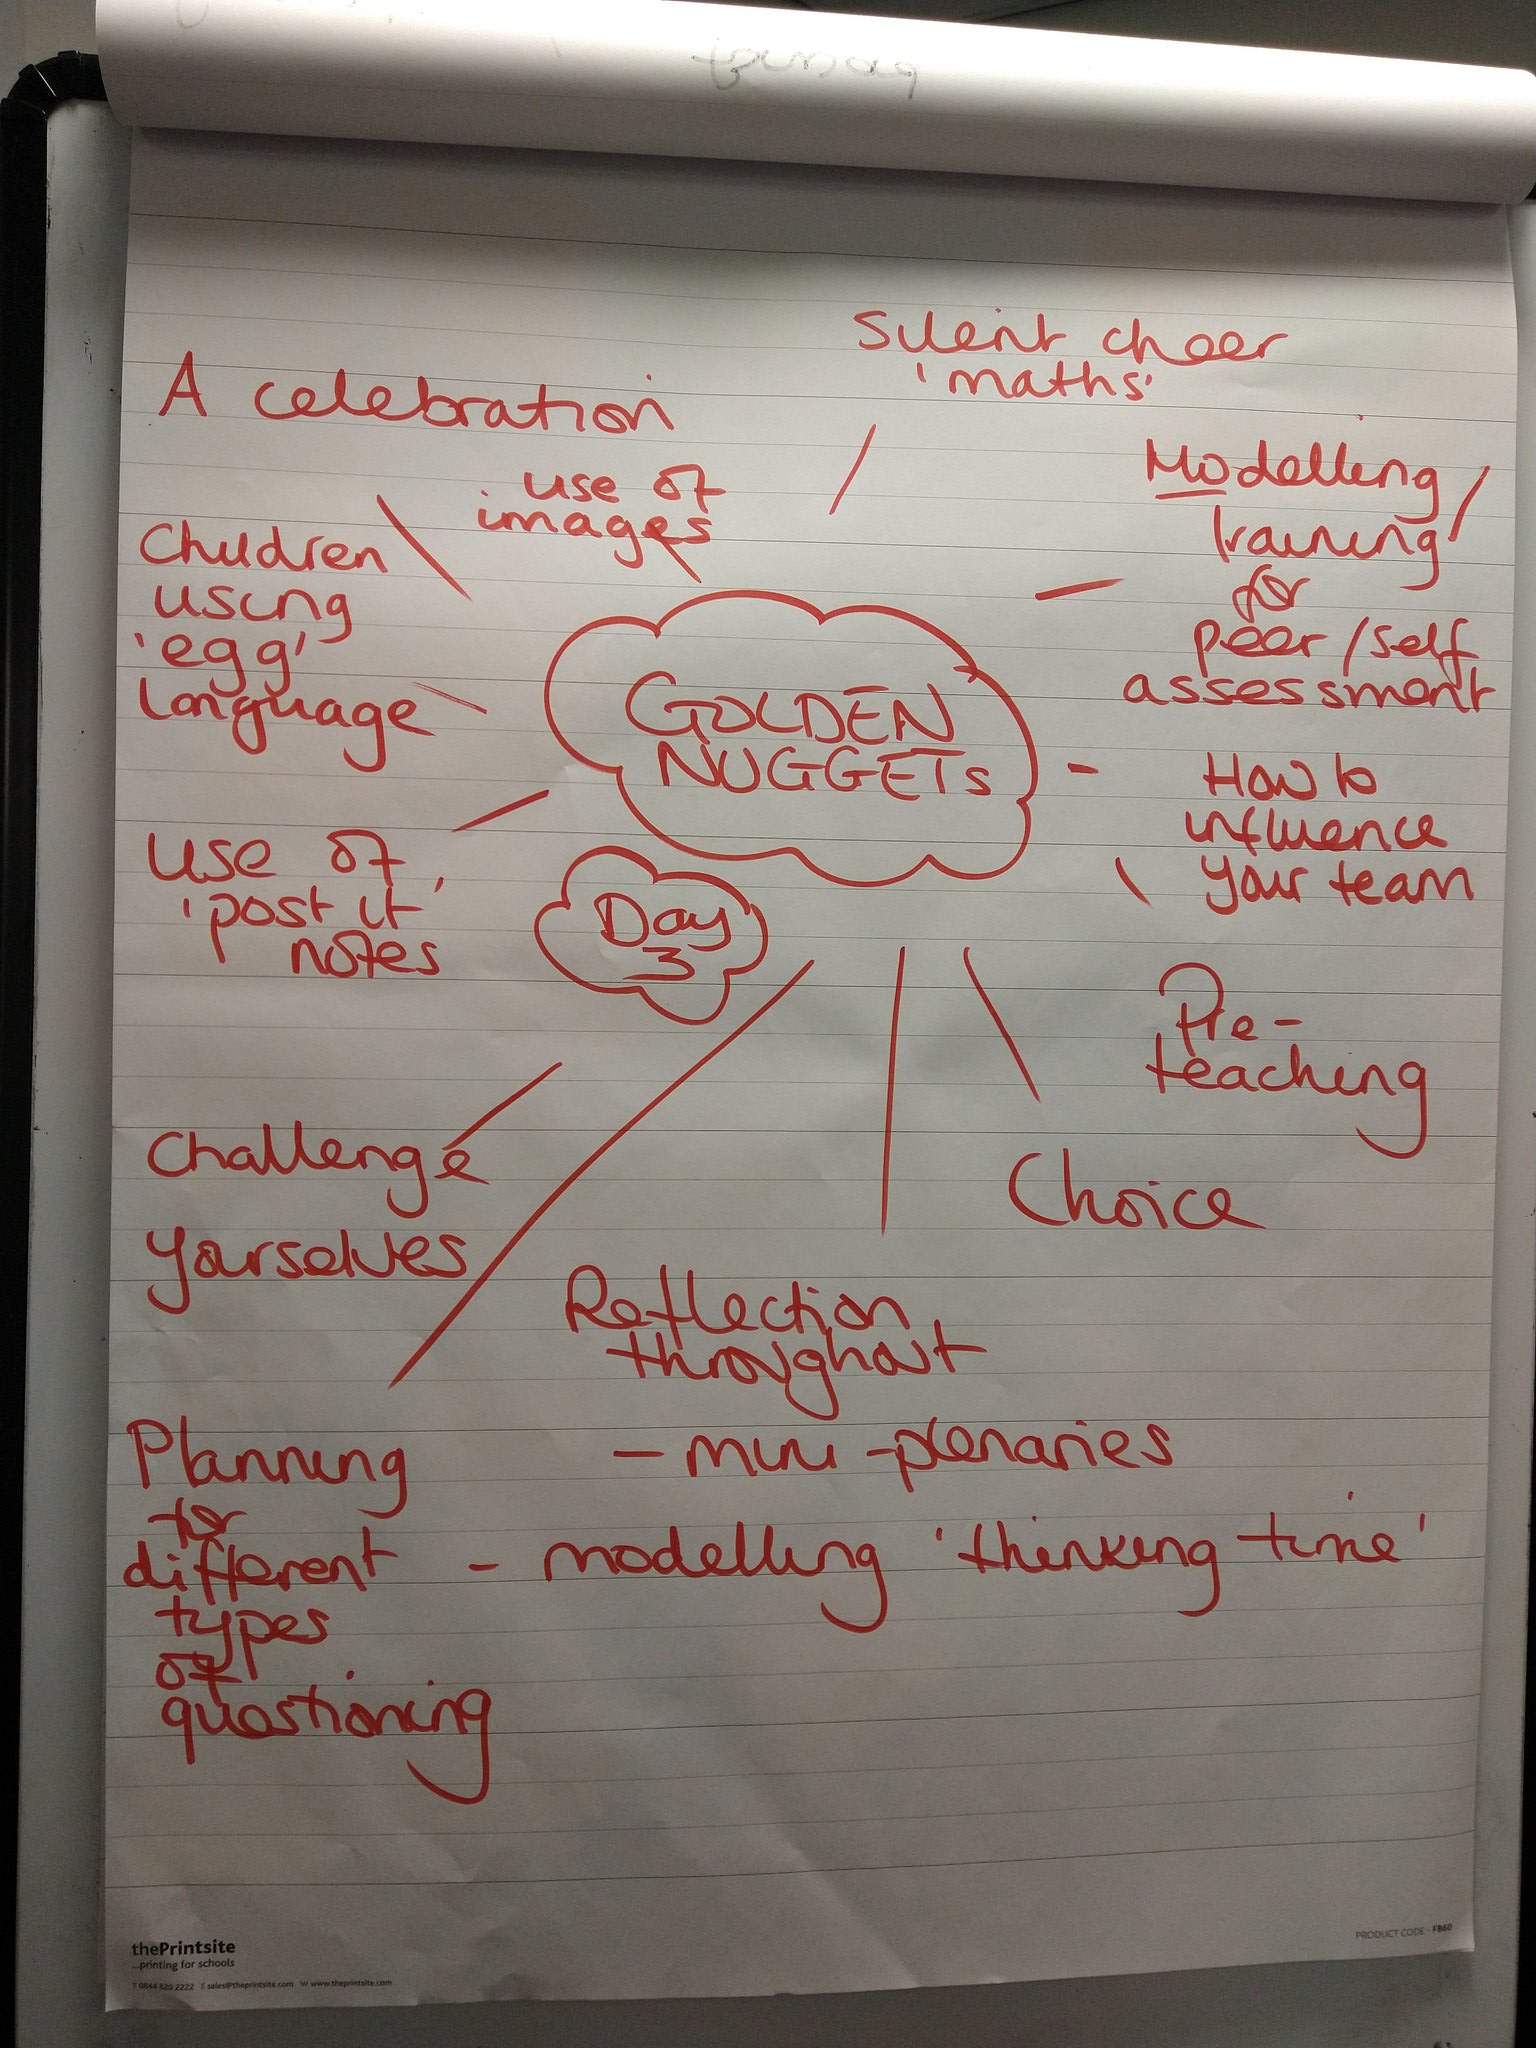 Silent cheer
'maths'
A celebration
use of
images
Modelling/
training
for
peer/self
assessment
Children
using
'egg'
language
GOLDEN
NUGGETS
How to
influence
your team
use of
'post it'
notes
Day
3
Pre-
teaching
Challenge
yourselves
Choice
Reflection
throughout
- mini-plenaries
- modelling 'thinking time'
Planning
for
different
types
of
questioning
thePrintsite
...printing for schools
T 0844 820 2222 E sales@theprintsite.com W www.theprintsite.com
PRODUCT CODE - FB60